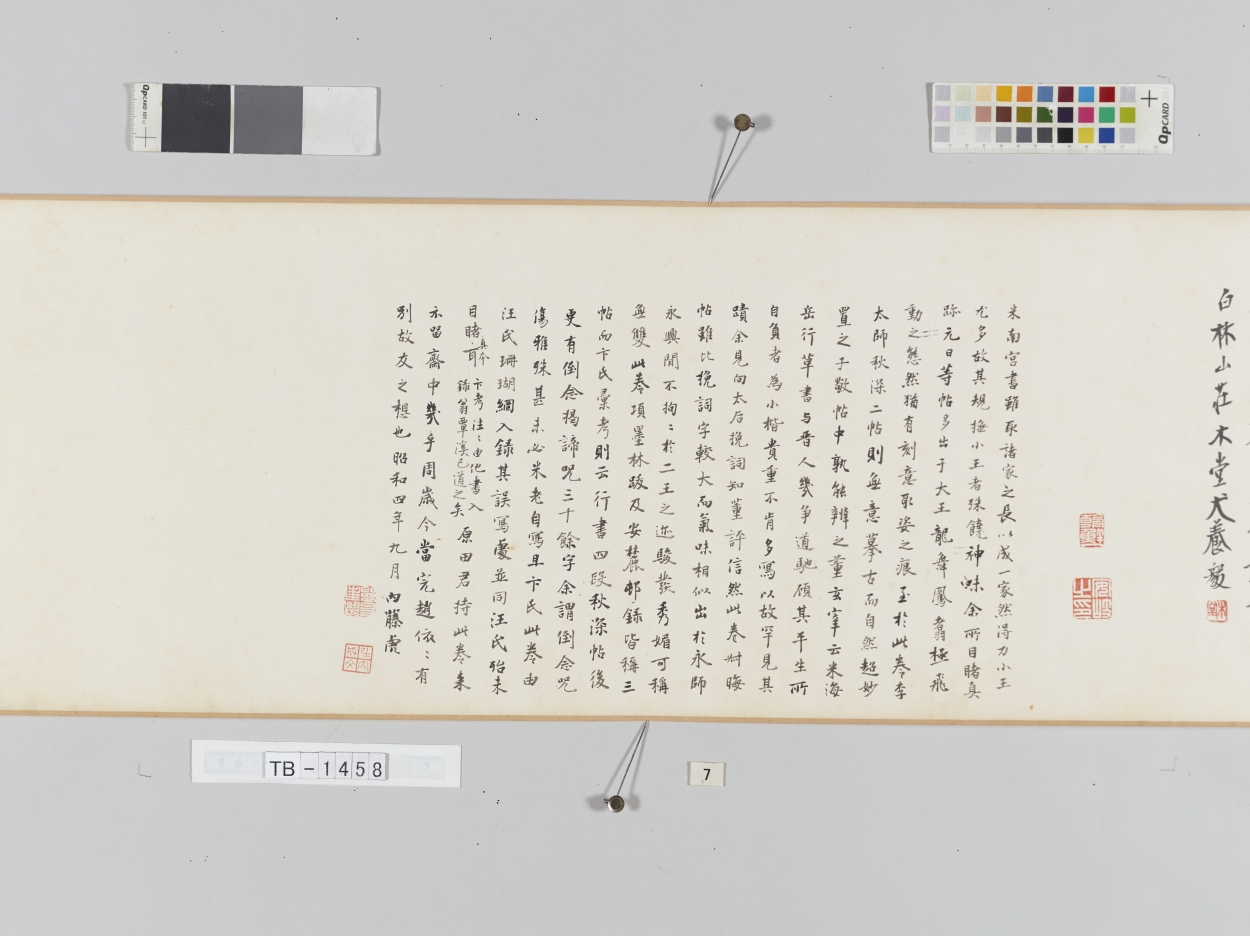 白林山荘木堂犬養毅
米南宮書雖取諸家之長以成一家然得力小王
尤多故其規橅小王者殊饒神味余所目睹真
跡元日等帖多出于大王龍舞鳳翥極飛
動之態然猶有刻意取姿之痕至於此巻李
太師秋深二帖則無意摹古而自然超妙
置之子敬帖中孰能辨之董玄宰云米海
岳行草書与晋人幾争道馳顧其平生所
自負者為小楷貴重不肯多寫以故罕見其
蹟余見向太后挽詞知董評信然此巻尌晦
帖雖比挽詞字較大而氣味相似出於永師
永興間不拘々於二王之迹駿發秀媚可稱
無雙此巻項墨林跋及安麓邨録皆稱三
帖而卞氏彙考則云行書四段秋深帖後
更有倒念揭諦呪三十餘字余謂倒念呪
傷雅殊甚未必米老自寫且卞氏此巻由
汪氏珊瑚網入録其誤寫處並同汪氏殆未
目睹真本耳卞考注々由他書入
録翁覃溪已道之矣原田君持此巻来
示留齋中幾乎周歳今當完趙依々有
別故友之想也昭和四年九月内藤虎
TB-1458
7
QPCARD 101
QPCARD 201